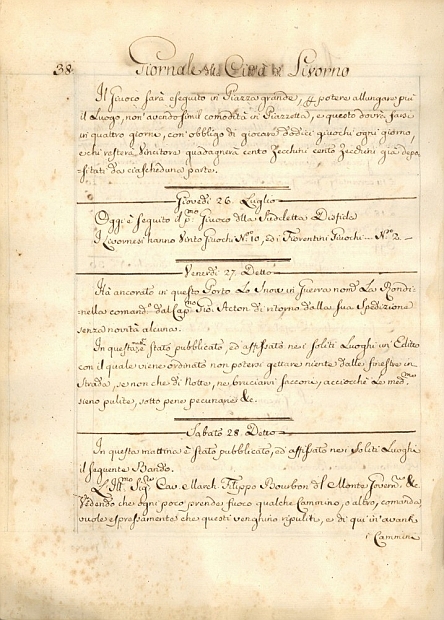 38. Giornale della Città di Livorno
Il Giuoco sarà eseguito in Piazza grande, p potere allungare più
il Luogo, non avendo simil comodità in Piazzetta, e questo dovrà farsi
in quattro giorni, con obbligo di giocarsi dodici giuochi ogni giorno,
e chi resterà Vincitore guadagnerà cento Zecchini cento Zecchini già depo-
sitati da ciascheduna parte.
Giovedì 26. Luglio
Oggi è seguito il pmo Giuoco della Sudetta Disfida
I Livornesi hanno Vinto Giuochi No 10, ed i Fiorentini Giuochi No 2
Venerdì 27. Detto
Hà ancorato in questo Porto Lo Snow in Guerra nomo La Rondi-
nella comando dal Capno Gio. Acton di ritorno dalla sua Spedizione
senza novità alcuna.
In questa è stato pubblicato, ed affissato nei soliti Luoghi un Edito
con il quale viene ordinato non potersi gettare niente dalle finestre in
Strada, se non che di Notte, nè bruciarvi sacconi, acciocchè Le medme
sieno pulite, sotto pene pecuniarie &c.
Sabato 28. Detto
In questa mattina è stato pubblicato, ed affissato nei Soliti Luoghi
il seguente Bando.
L'Illmo Sigre Cav. March. Filippo Bourbon del Monte Govern. &c
Vedendo che ogni poco prende fuoco qualche Cammino, o altro, comanda
vuole espressamente che questi venghino ripuliti, e di qui in avanti
i Cammini